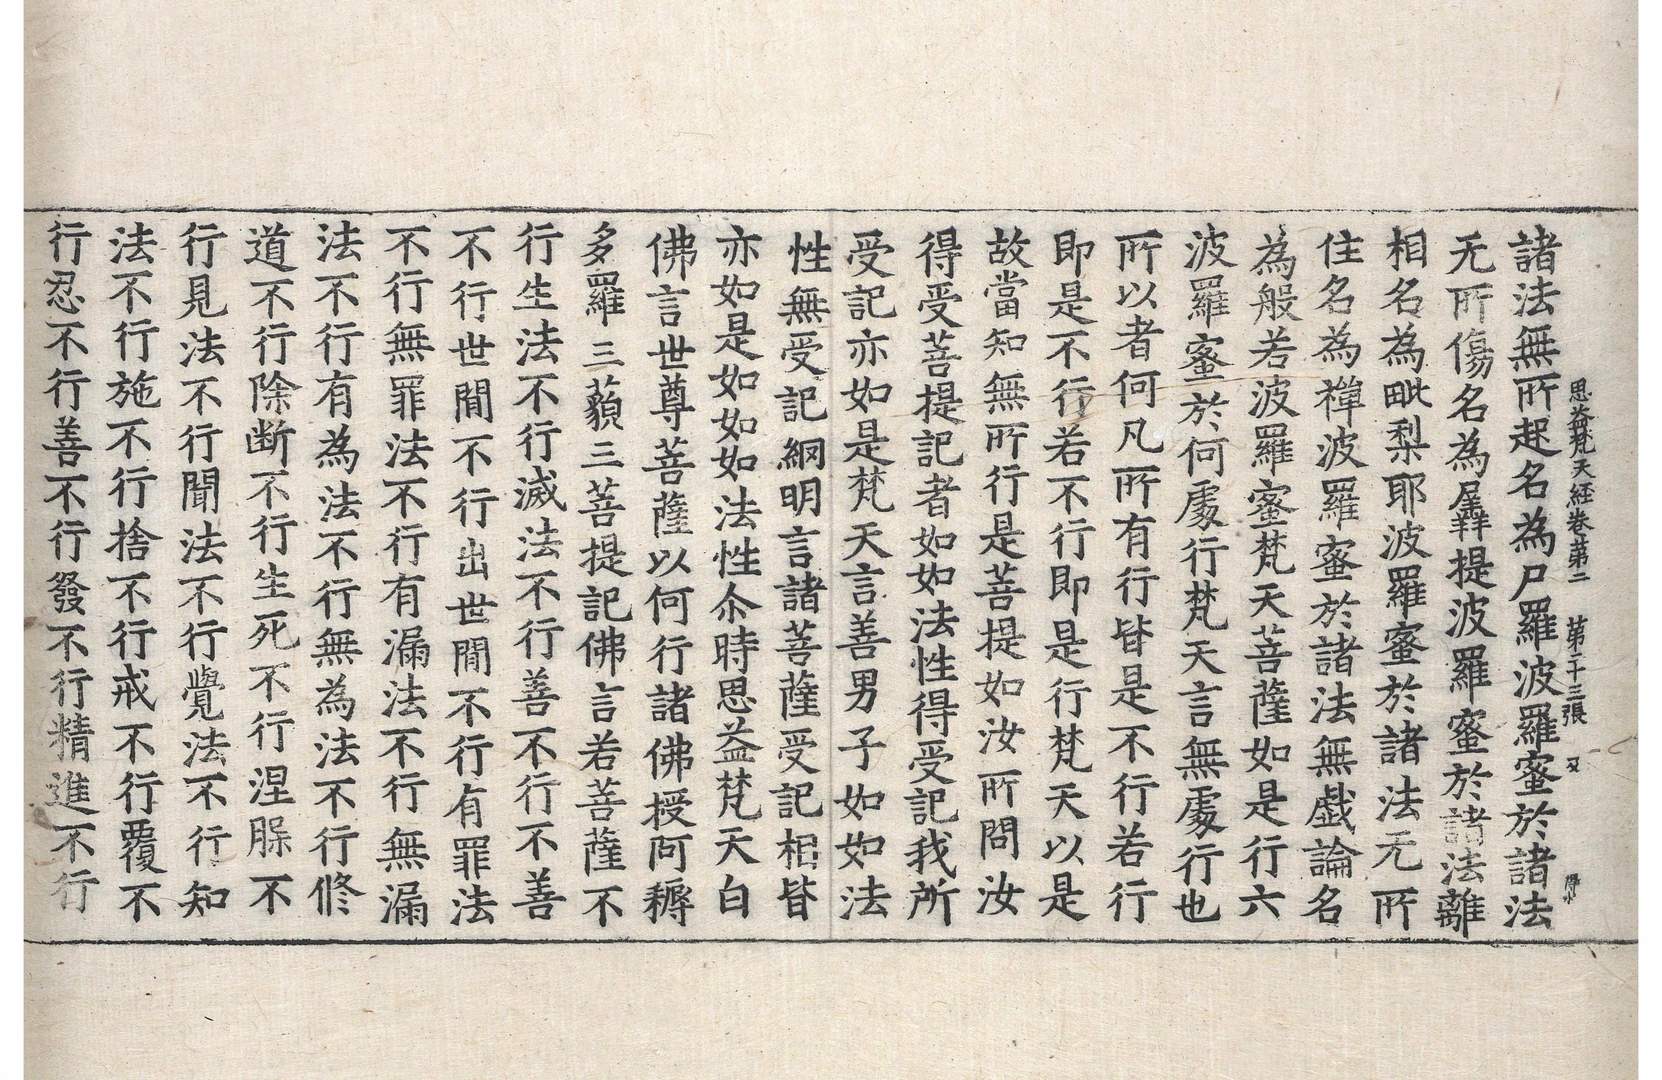 思益梵天経卷第二 第二十三張 又
諸法無所起名為尸羅波羅蜜於諸法
无所傷名為羼提波羅蜜於諸法離
相名為毗梨耶波羅蜜於諸法无所
住名為禪波羅蜜於諸法無戲論名
為般若波羅蜜梵天菩薩如是行六
波羅蜜於何處行梵天言無處行也
所以者何凡所有行皆是不行若行
即是不行若不行即是行梵天以是
故當知無所行是菩提如汝所問汝
得受菩提記者如如法性得受記我所
受記亦如是梵天言善男子如如法
性無受記網明言諸菩薩受記相皆
亦如是如如如法性尒時思益梵天白
佛言世尊菩薩以何行諸佛授阿耨
多羅三藐三菩提記佛言若菩薩不
行生法不行滅法不行善不行不善
不行世間不行出世間不行有罪法
不行無罪法不行有漏法不行無漏
法不行有為法不行無為法不行修
道不行除断不行生死不行涅槃不
行見法不行聞法不行覺法不行知
法不行施不行捨不行戒不行覆不
行忍不行善不行發不行精進不行